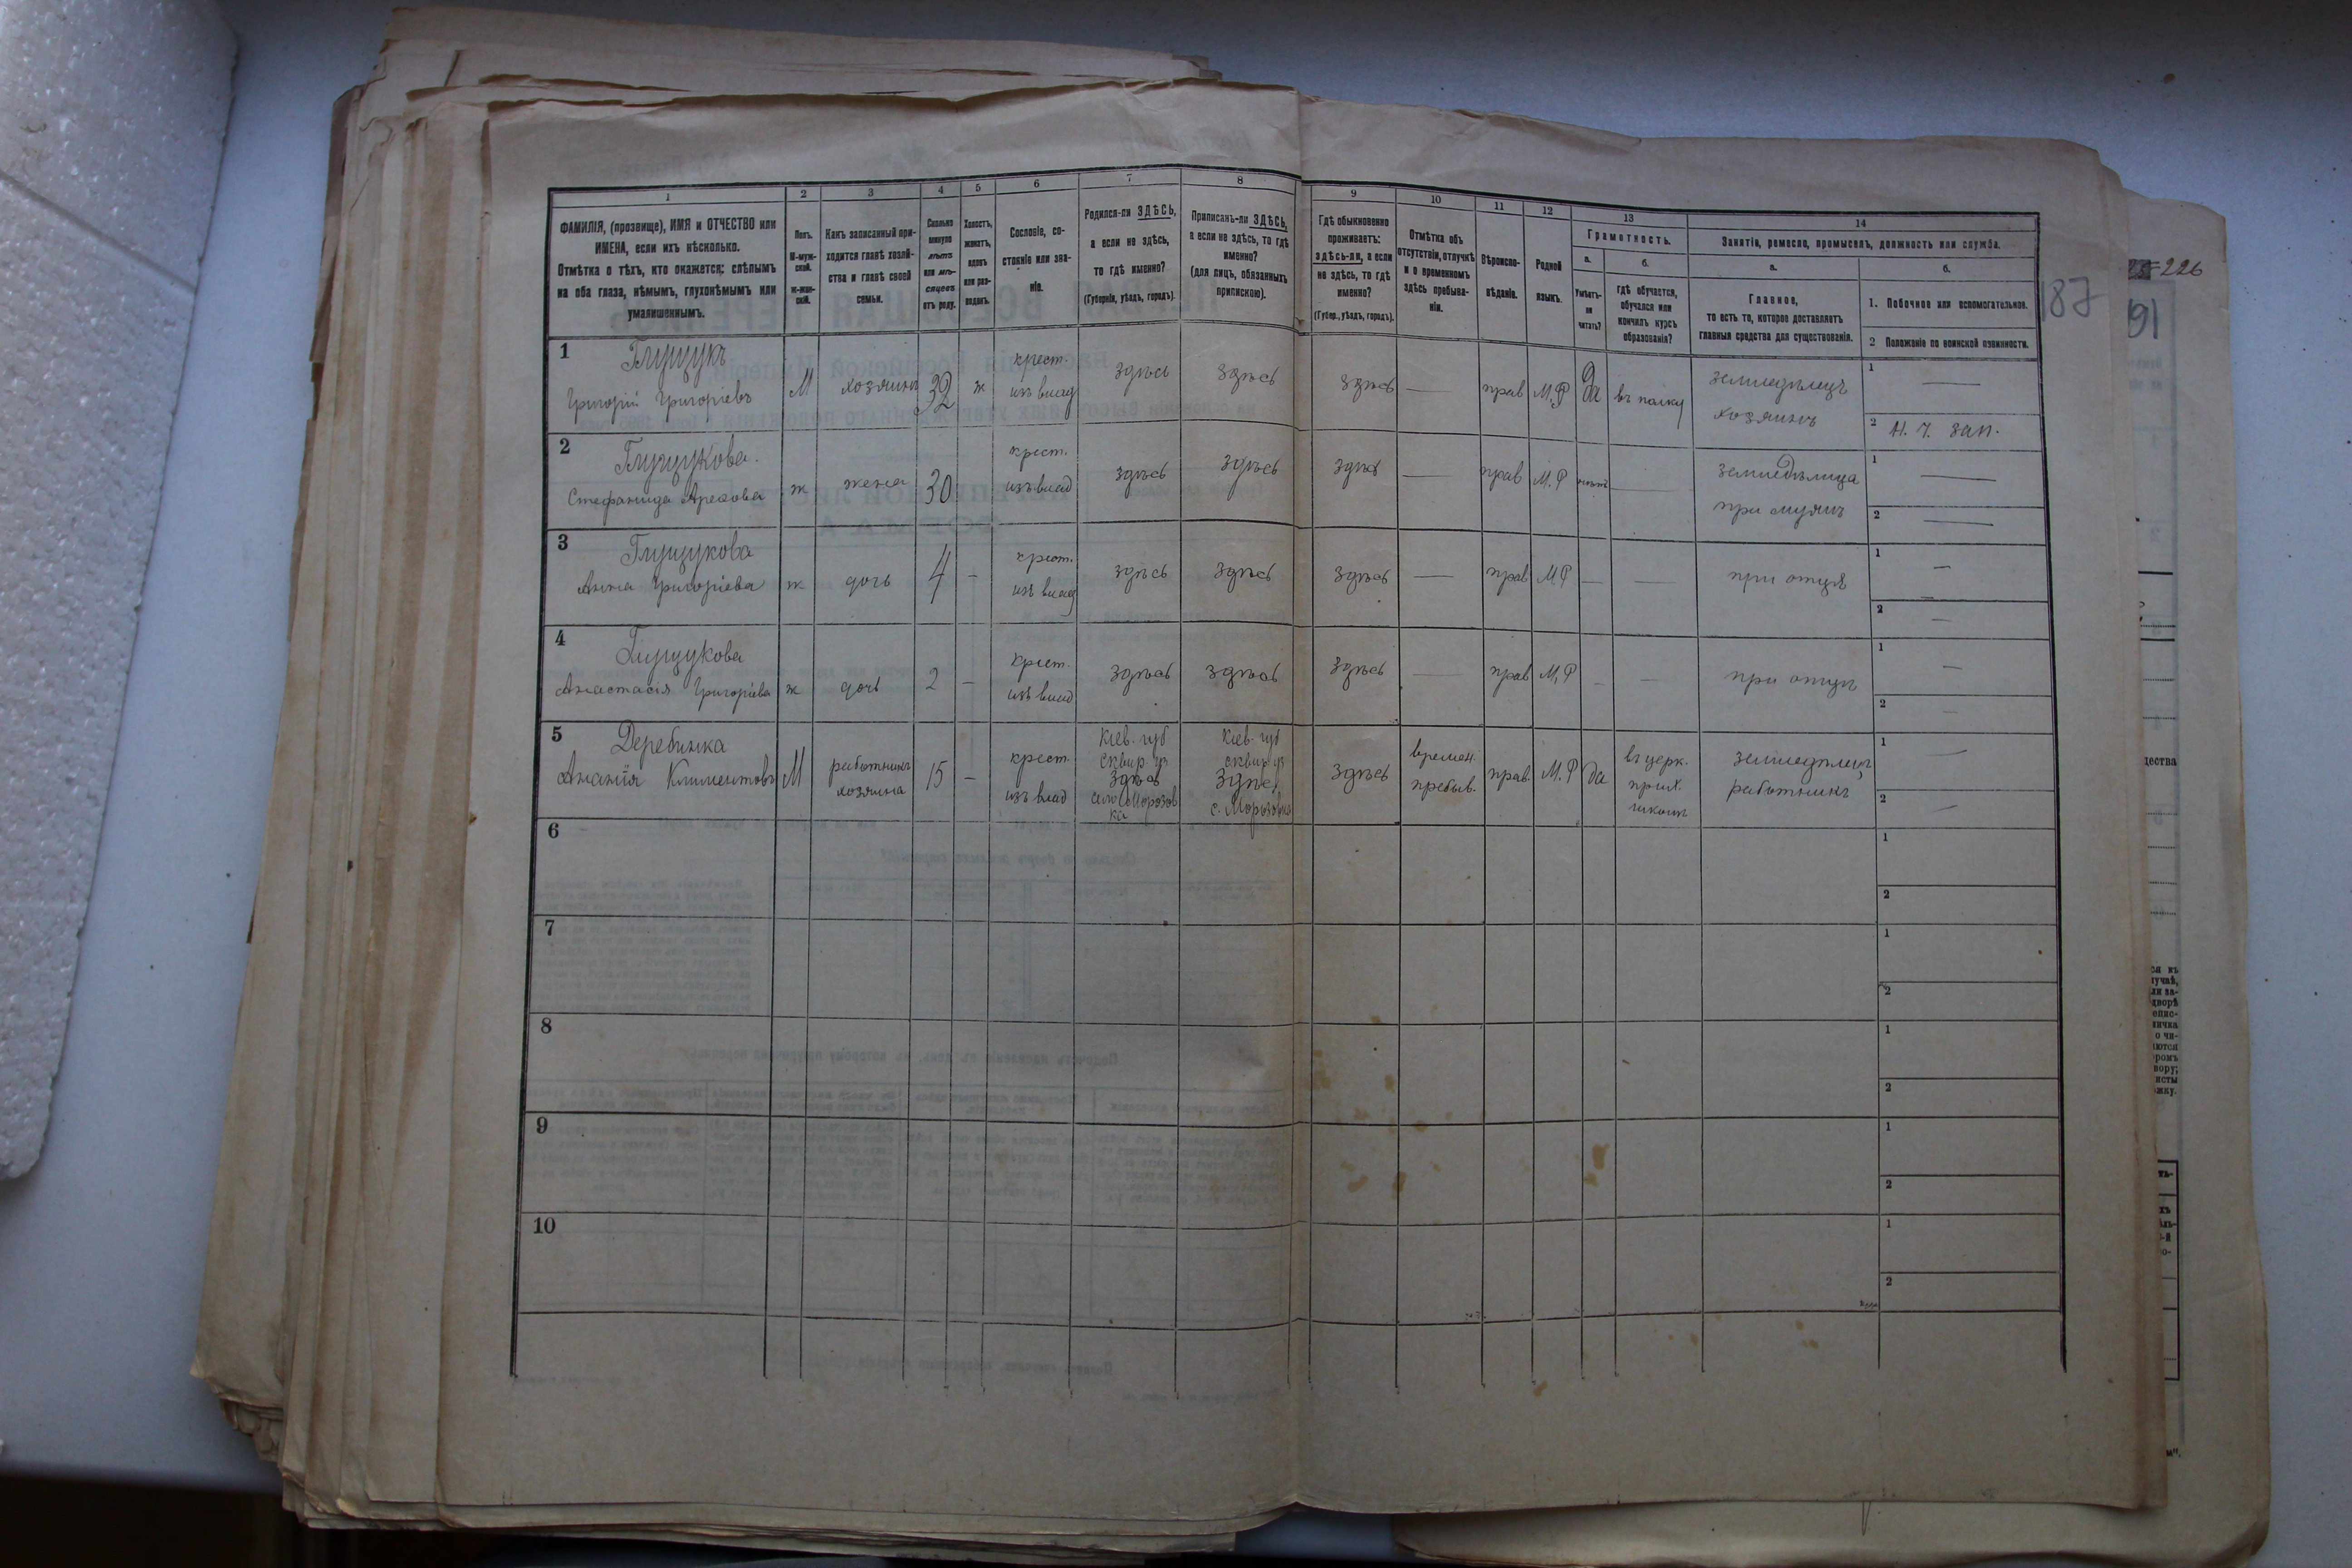 1 2 3 4 5 6 7 8 9 10 11 12 13 14
ФАМИЛІЯ, (прозвище), ИМЯ и ОТЧЕСТВО или
ИМЕНА, если ихъ нѣсколько.
Отмѣтка о тѣхъ, кто окажется: слѣпымъ
на оба глаза, нѣмымъ, глухонѣмымъ или
умалишеннымъ.
Полъ.
М-муж-
ской.
ж-жен-
скій.
Какъ записанный при-
ходится главѣ хозяй-
ства и главѣ своей
семьи.
Сколько
минуло
лѣтъ
или мѣ-
сяцевъ
отъ роду.
Холостъ,
женатъ,
вдовъ
или раз-
веденъ.
Сословіе, со-
стояніе или зва-
ніе.
Родился-ли ЗДѢСЬ,
а если не здѣсь,
то гдѣ именно?
(Губернія, уѣздъ, городъ).
Приписанъ-ли ЗДѢСЬ,
а если не здѣсь, то гдѣ
именно?
(для лицъ, обязанныхъ
припискою).
Гдѣ обыкновенно
проживаетъ:
здѣсь-ли, а если
не здѣсь, то гдѣ
именно?
(Губер., уѣздъ, городъ).
Отмѣтка объ
отсутствіи, отлучкѣ
и о временномъ
здѣсь пребыва-
ніи.
Вѣроиспо-
вѣданіе.
Родной
языкъ.
Грамотность.
а.
Умѣетъ-
ли
читать?
б.
гдѣ обучается,
обучался или
кончилъ курсъ
образованія?
Занятіе, ремесло, промыселъ, должность или служба.
а.
Главное,
то есть то, которое доставляетъ
главныя средства для существованія.
б.
1. Побочное или вспомогательное.
2 Положеніе по воинской повинности.
187
226
91
1 Глущукъ
Григорій Григорьевъ М хозяинъ 32 ж
крест.
изъ влад
здѣсь здѣсь здѣсь — прав М.Р да въ полку
земледѣлецъ
хозяинъ
1 —
2 Н. Ч. зап.
2 Глущукова.
Стефанида ж жена 30
крест.
изъ влад
здѣсь здѣсь здѣсь — прав М.Р —
земледѣлица
при мужѣ
1 —
2 —
3 Глущукова
Анна Григорьева ж дочь 4 -
крест.
изъ влад
здѣсь здѣсь здѣсь — прав М.Р — —
при отцѣ
1 —
2 —
4 Глущукова
Анастасія Григорьева ж дочь 2 -
крест.
изъ влад
здѣсь здѣсь здѣсь — прав М.Р - —
при отцѣ
1 —
2 —
5 Деребинка
Ананія Климентовъ М
работникъ
хозяина
15 -
крест.
изъ влад
Кіев. губ
сквир уз
здѣсь
село Морозов
ка
Кіев. губ
сквир уз
здѣсь
с. Морозовка
здѣсь
времен.
пребыв.
прав. М.Р да
въ церк.
прих.
школѣ
земледѣлец
работникъ
1 —
2 —
6
1
2
7
1
2
8
1
2
9
1
2
10
1
2